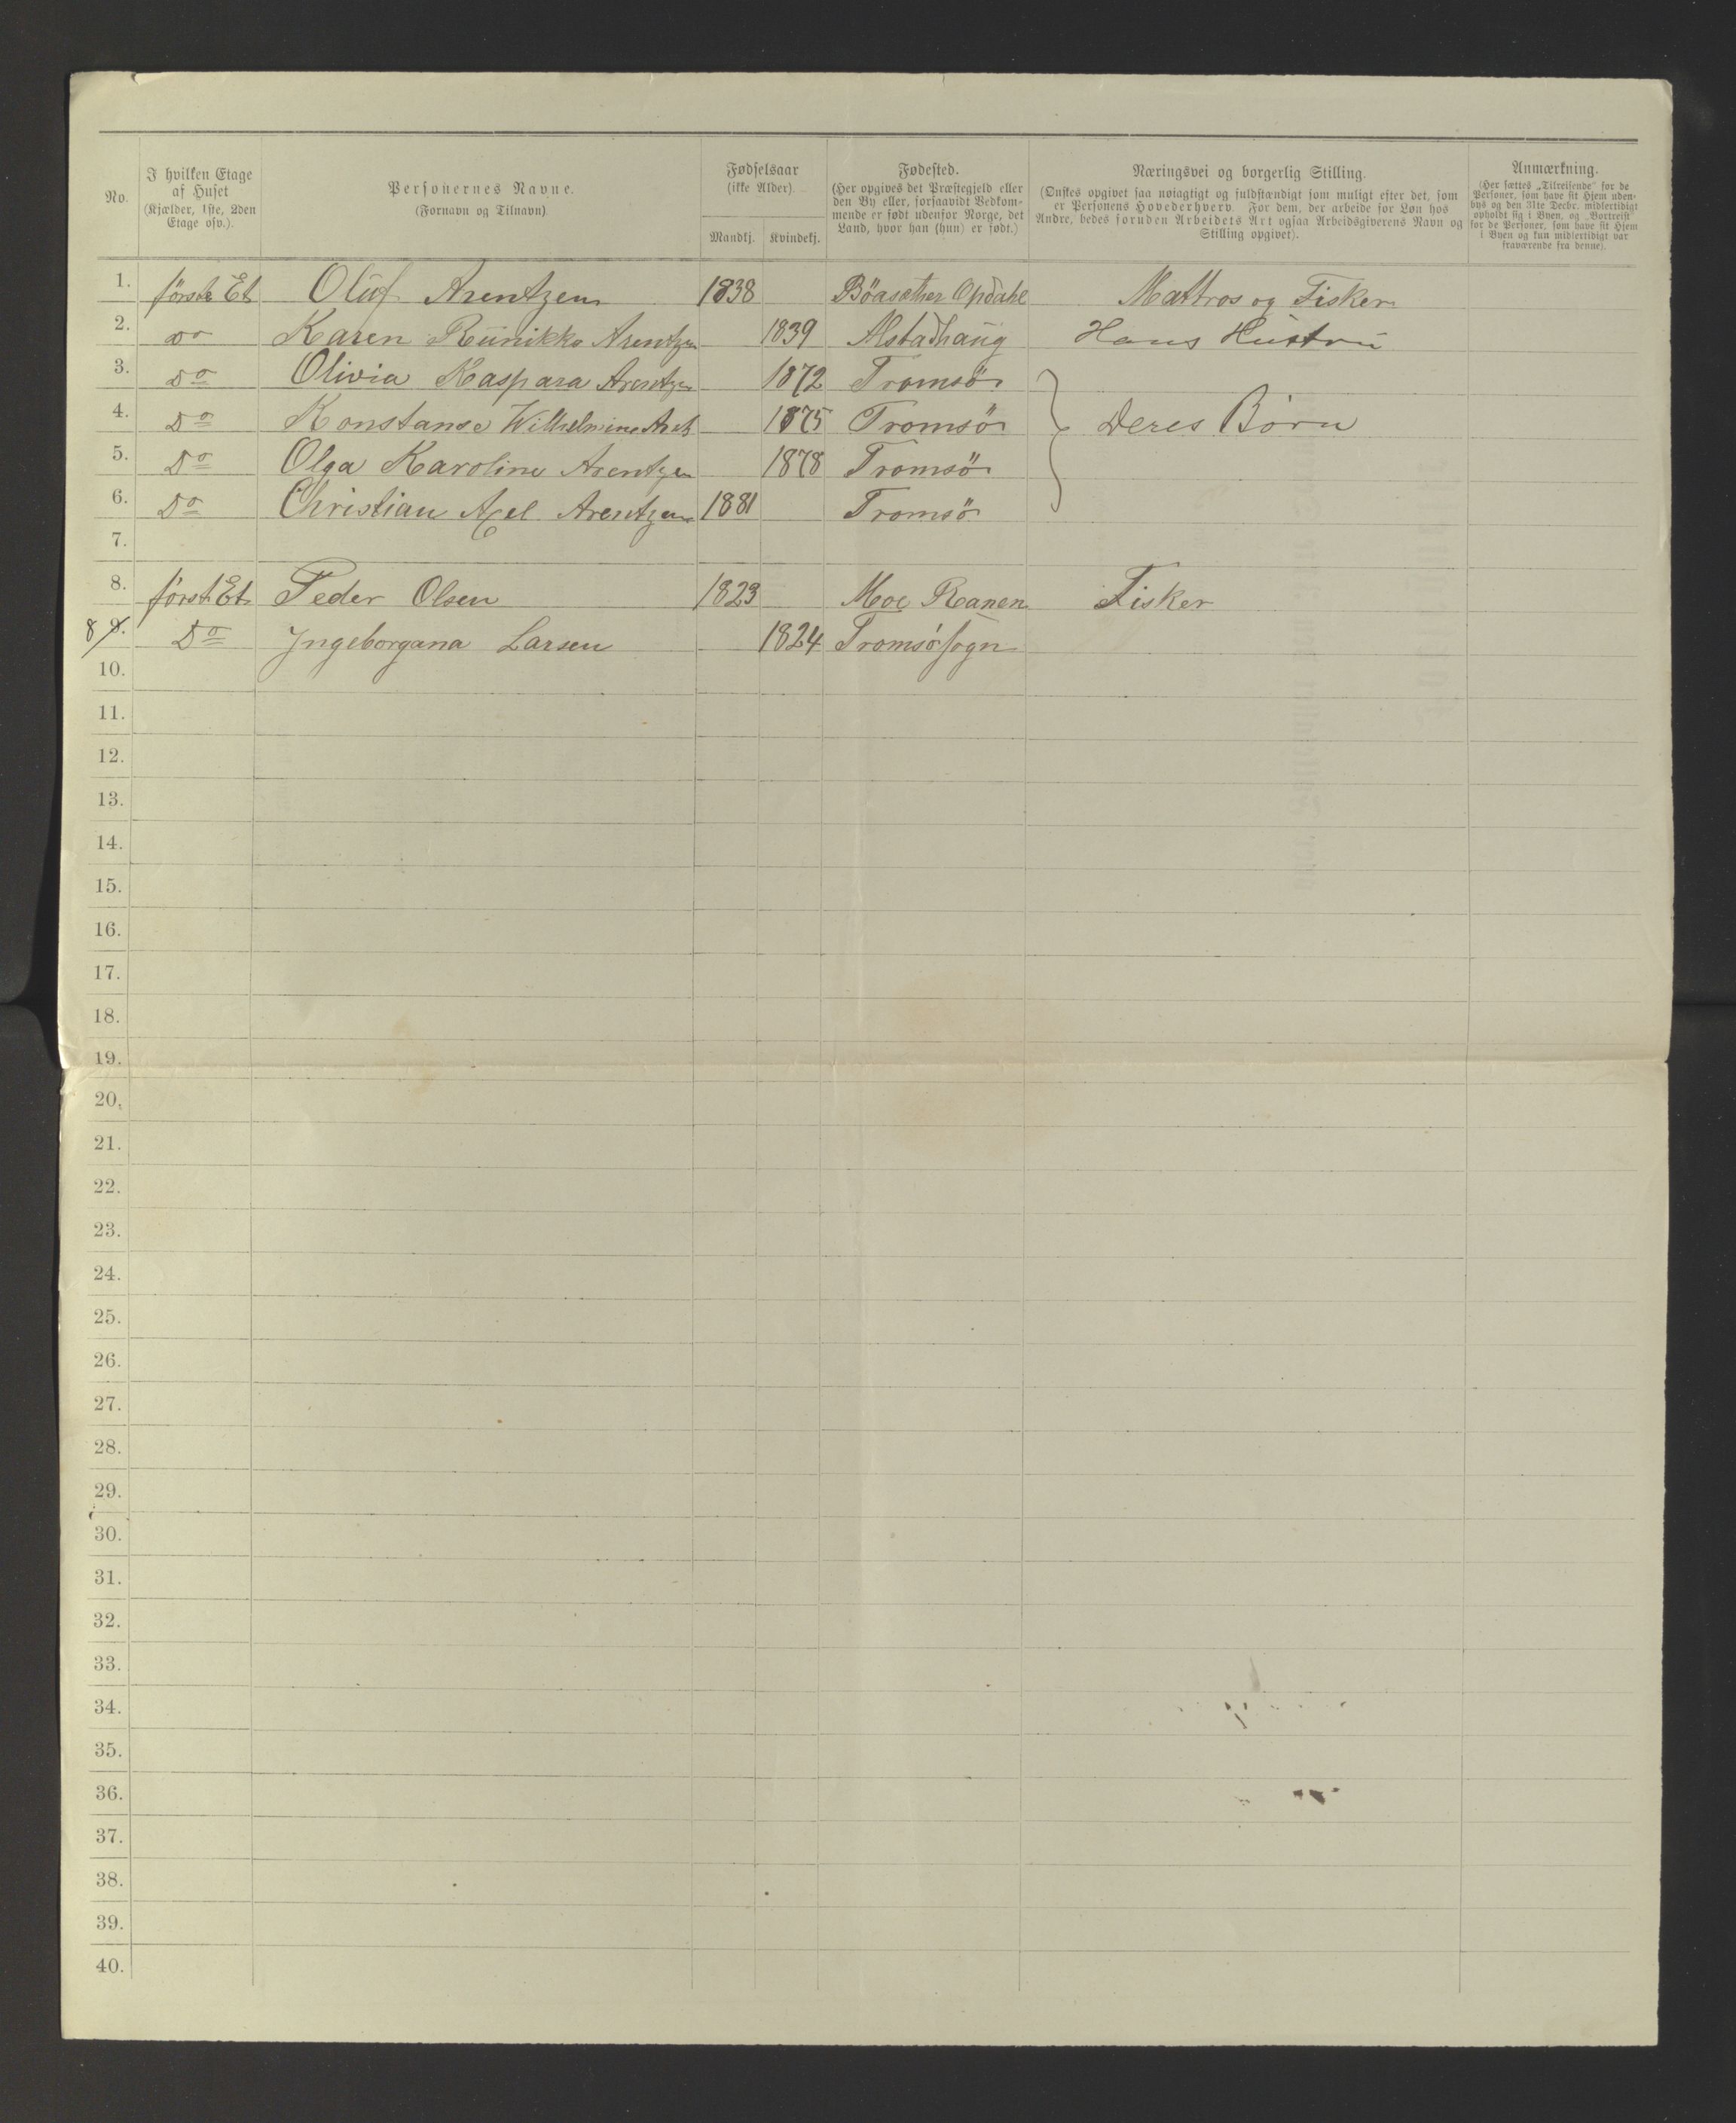 No.
I hvilken Etage
af Huset
(Kjælder, 1ste, 2den
Etage osv.).
Personernes Navne.
(Fornavn og Tilnavn)
Fødselsaar
(ikke Alder).
Mandkj. Kvindekj.
Fødested.
(Her opgives det Præstegjeld eller
den By eller, forsaavidt Vedkom-
mende er født udenfor Norge, det
Land, hvor han (hun) er født.)
Næringsvei og borgerlig Stilling.
(Ønskes opgivet saa nøiagtigt og fuldstændigt som muligt efter det, som
er Personens Hovederhverv. For dem, der arbeide for Løn hos
Andre, bedes foruden Arbeidets Art ogsaa Arbeidsgiverens Navn og
Stilling opgivet).
Anmærkning.
(Her sættes „Tilreisende" for de
Personer, som have sit Hjem uden-
bys og den 31te Decbr. midlertidigt
opholdt sig i Byen, og „Bortreist"
for de Personer, som have sit Hjem
i Byen og kun midlertidigt var
fraværende fra denne).
1. første Et Oluf Arentzen 1838 Böasæther Opdahl Mattros og Fisker
2. Do Karen Rünikke Arentzen 1839 Alstadhaug Hans Hüstrü
3. Do Olivia Kaspara Arentzen 1872 Tromsö
4. Do Konstanse Wilhelmine 1875 Tromsö Deres Börn
5. Do Olga Karoline Arentzen 1878 Tromsö
6. Do Christian Axel Arentzen 1881 Tromsö
7.
8. först Et Peder Olsen 1823 Moe Ranen Fisker
8 9. Do Ingeborgana Larsen 1824 Tromsösogn
10.
11.
12.
13.
14.
15.
16.
17.
18.
19.
20.
21.
22.
23.
24.
25.
26.
27.
28.
29.
30.
31.
32.
33.
34.
35.
36.
37.
38.
39.
40.